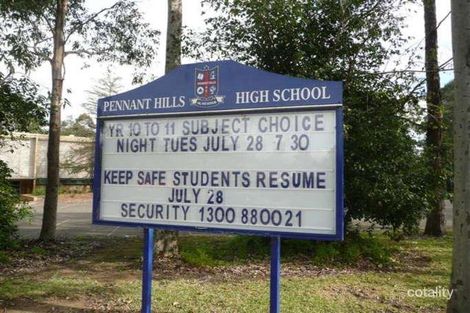 PENNANT HILLS HIGH SCHOOL
YR 10 TO 11 SUBJECT CHOICE
NIGHT TUES JULY 28 7 30
KEEP SAFE STUDENTS RESUME
JULY 28
SECURITY 1300 880021
cotality